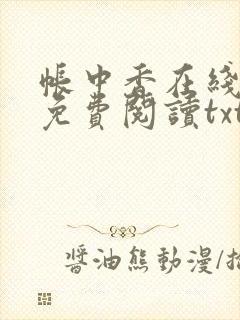 帳中香在綫
免費閱讀txt
醬油熊動漫/